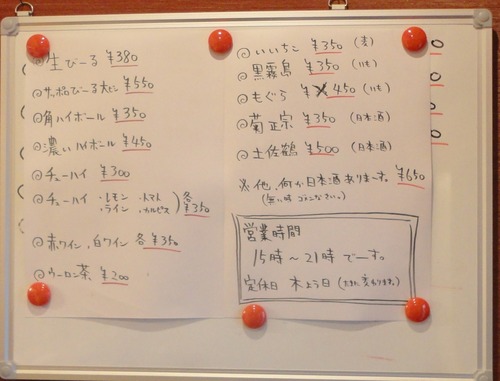 ◎生びーる ¥380
◎サッポロびーる大ビン ¥550
◎角ハイボール ¥350
◎濃いハイボール ¥450
◎チューハイ ¥300
◎チューハイ ・レモン ・トマト
・ライン ・カルピス 各¥350
◎赤ワイン、白ワイン 各¥350
◎ウーロン茶 ¥200
◎いいちこ ¥350 (麦)
◎黒霧島 ¥350 (いも)
◎もぐら ¥450 (いも)
◎菊正宗 ¥350 (日本酒)
◎土佐鶴 ¥500 (日本酒)
※他、何か日本酒ありまーす。 ¥650
(無い時 ゴメンなさい。)
営業時間
15時〜21時 でーす。
定休日 木よう日 (たまに変わります。)